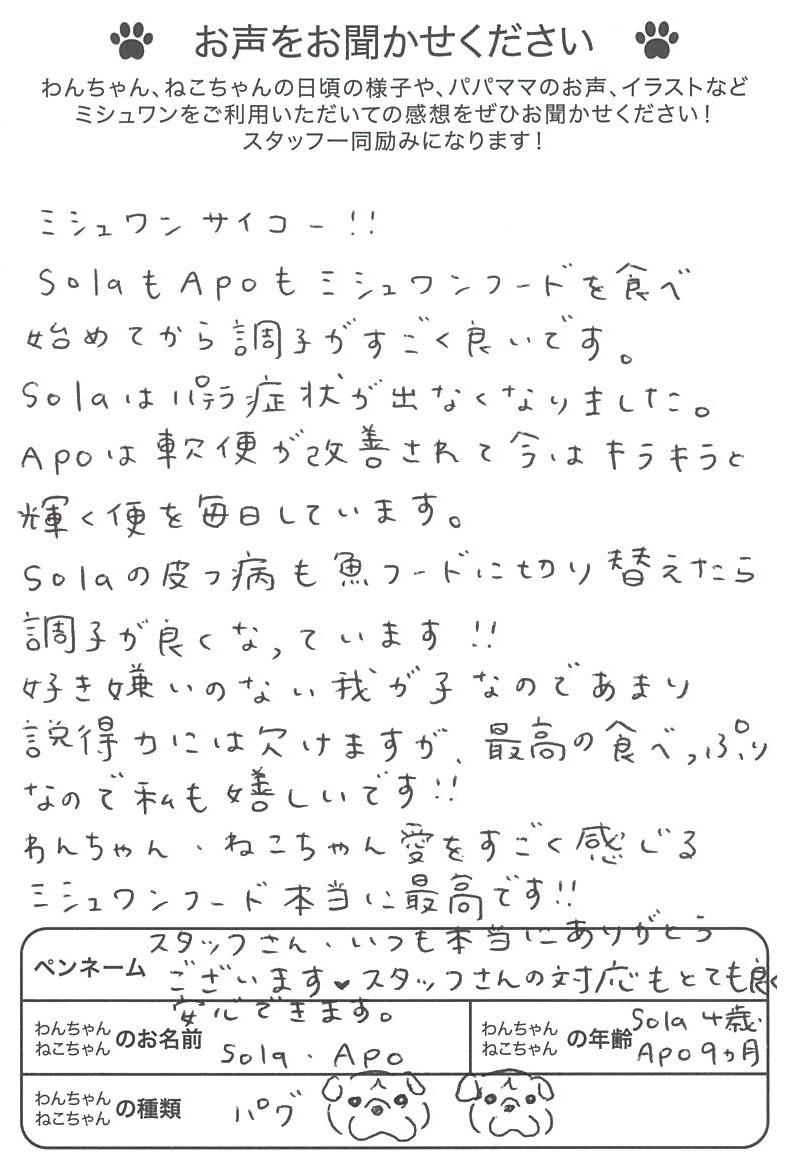 お声をお聞かせください
わんちゃん、ねこちゃんの日頃の様子や、パパママのお声、イラストなど
ミシュワンをご利用いただいての感想をぜひお聞かせください！
スタッフ一同励みになります！
ミシュワンサイコー!!
SolaもApoもミシュワンフードを食べ
始めてから調子がすごく良いです。
Solaはパテラ症状が出なくなりました。
Apoは軟便が改善されて今はキラキラと
輝く便を毎日しています。
Solaの皮フ病も魚フードに切り替えたら
調子が良くなっています!!
好き嫌いのない我が子なのであまり
説得力には欠けますが、最高の食べっぷり
なので私も嬉しいです!!
わんちゃん・ねこちゃん愛をすごく感じる
ミシュワンフード本当に最高です!!
スタッフさん・いつも本当にありがとう
ペンネーム
ございます♥スタッフさんの対応もとても良く
安心できます。
わんちゃん
ねこちゃん のお名前
Sola・Apo
わんちゃん
ねこちゃん の年齢
Sola 4歳・
Apo 9ヵ月
わんちゃん
ねこちゃん の種類
パグ